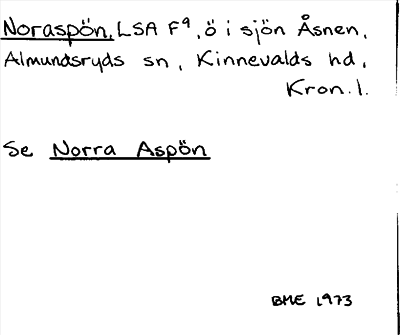 Noraspön, LSA F9, ö i sjön Åsnen,
Almundsryds sn, Kinnevalds hd,
Kron. l.
Se Norra Aspön
BME 1973